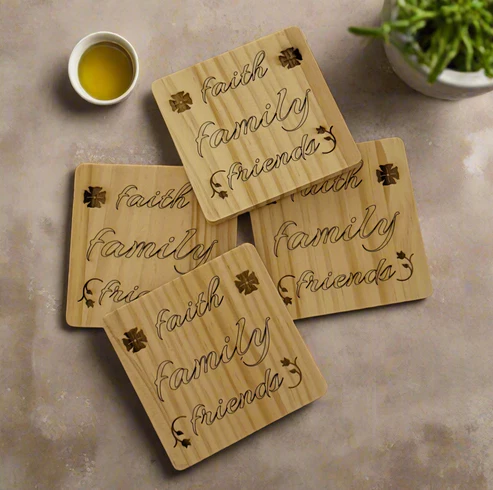 faith
family
friends
faith
family
friends
faith
family
friends
faith
family
friends